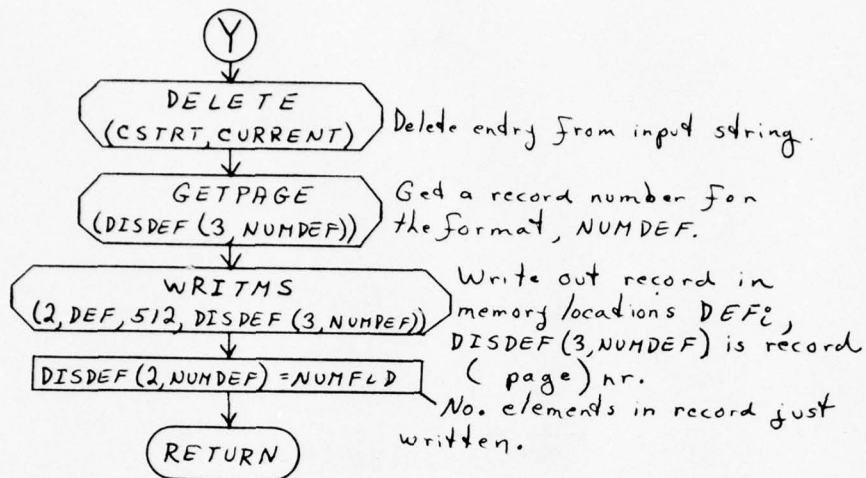 Y
DELETE
(CSTRT, CURRENT)
Delete entry from input string.
GETPAGE
(DISDEF (3, NUMDEF))
Get a record number for
the format, NUMDEF.
WRITMS
(2, DEF, 512, DISDEF (3, NUMDEF))
Write out record in
memory locations DEFi,
DISDEF (3, NUMDEF) is record
( page) nr.
DISDEF (2, NUMDEF) = NUMFLD
No. elements in record just
written.
RETURN